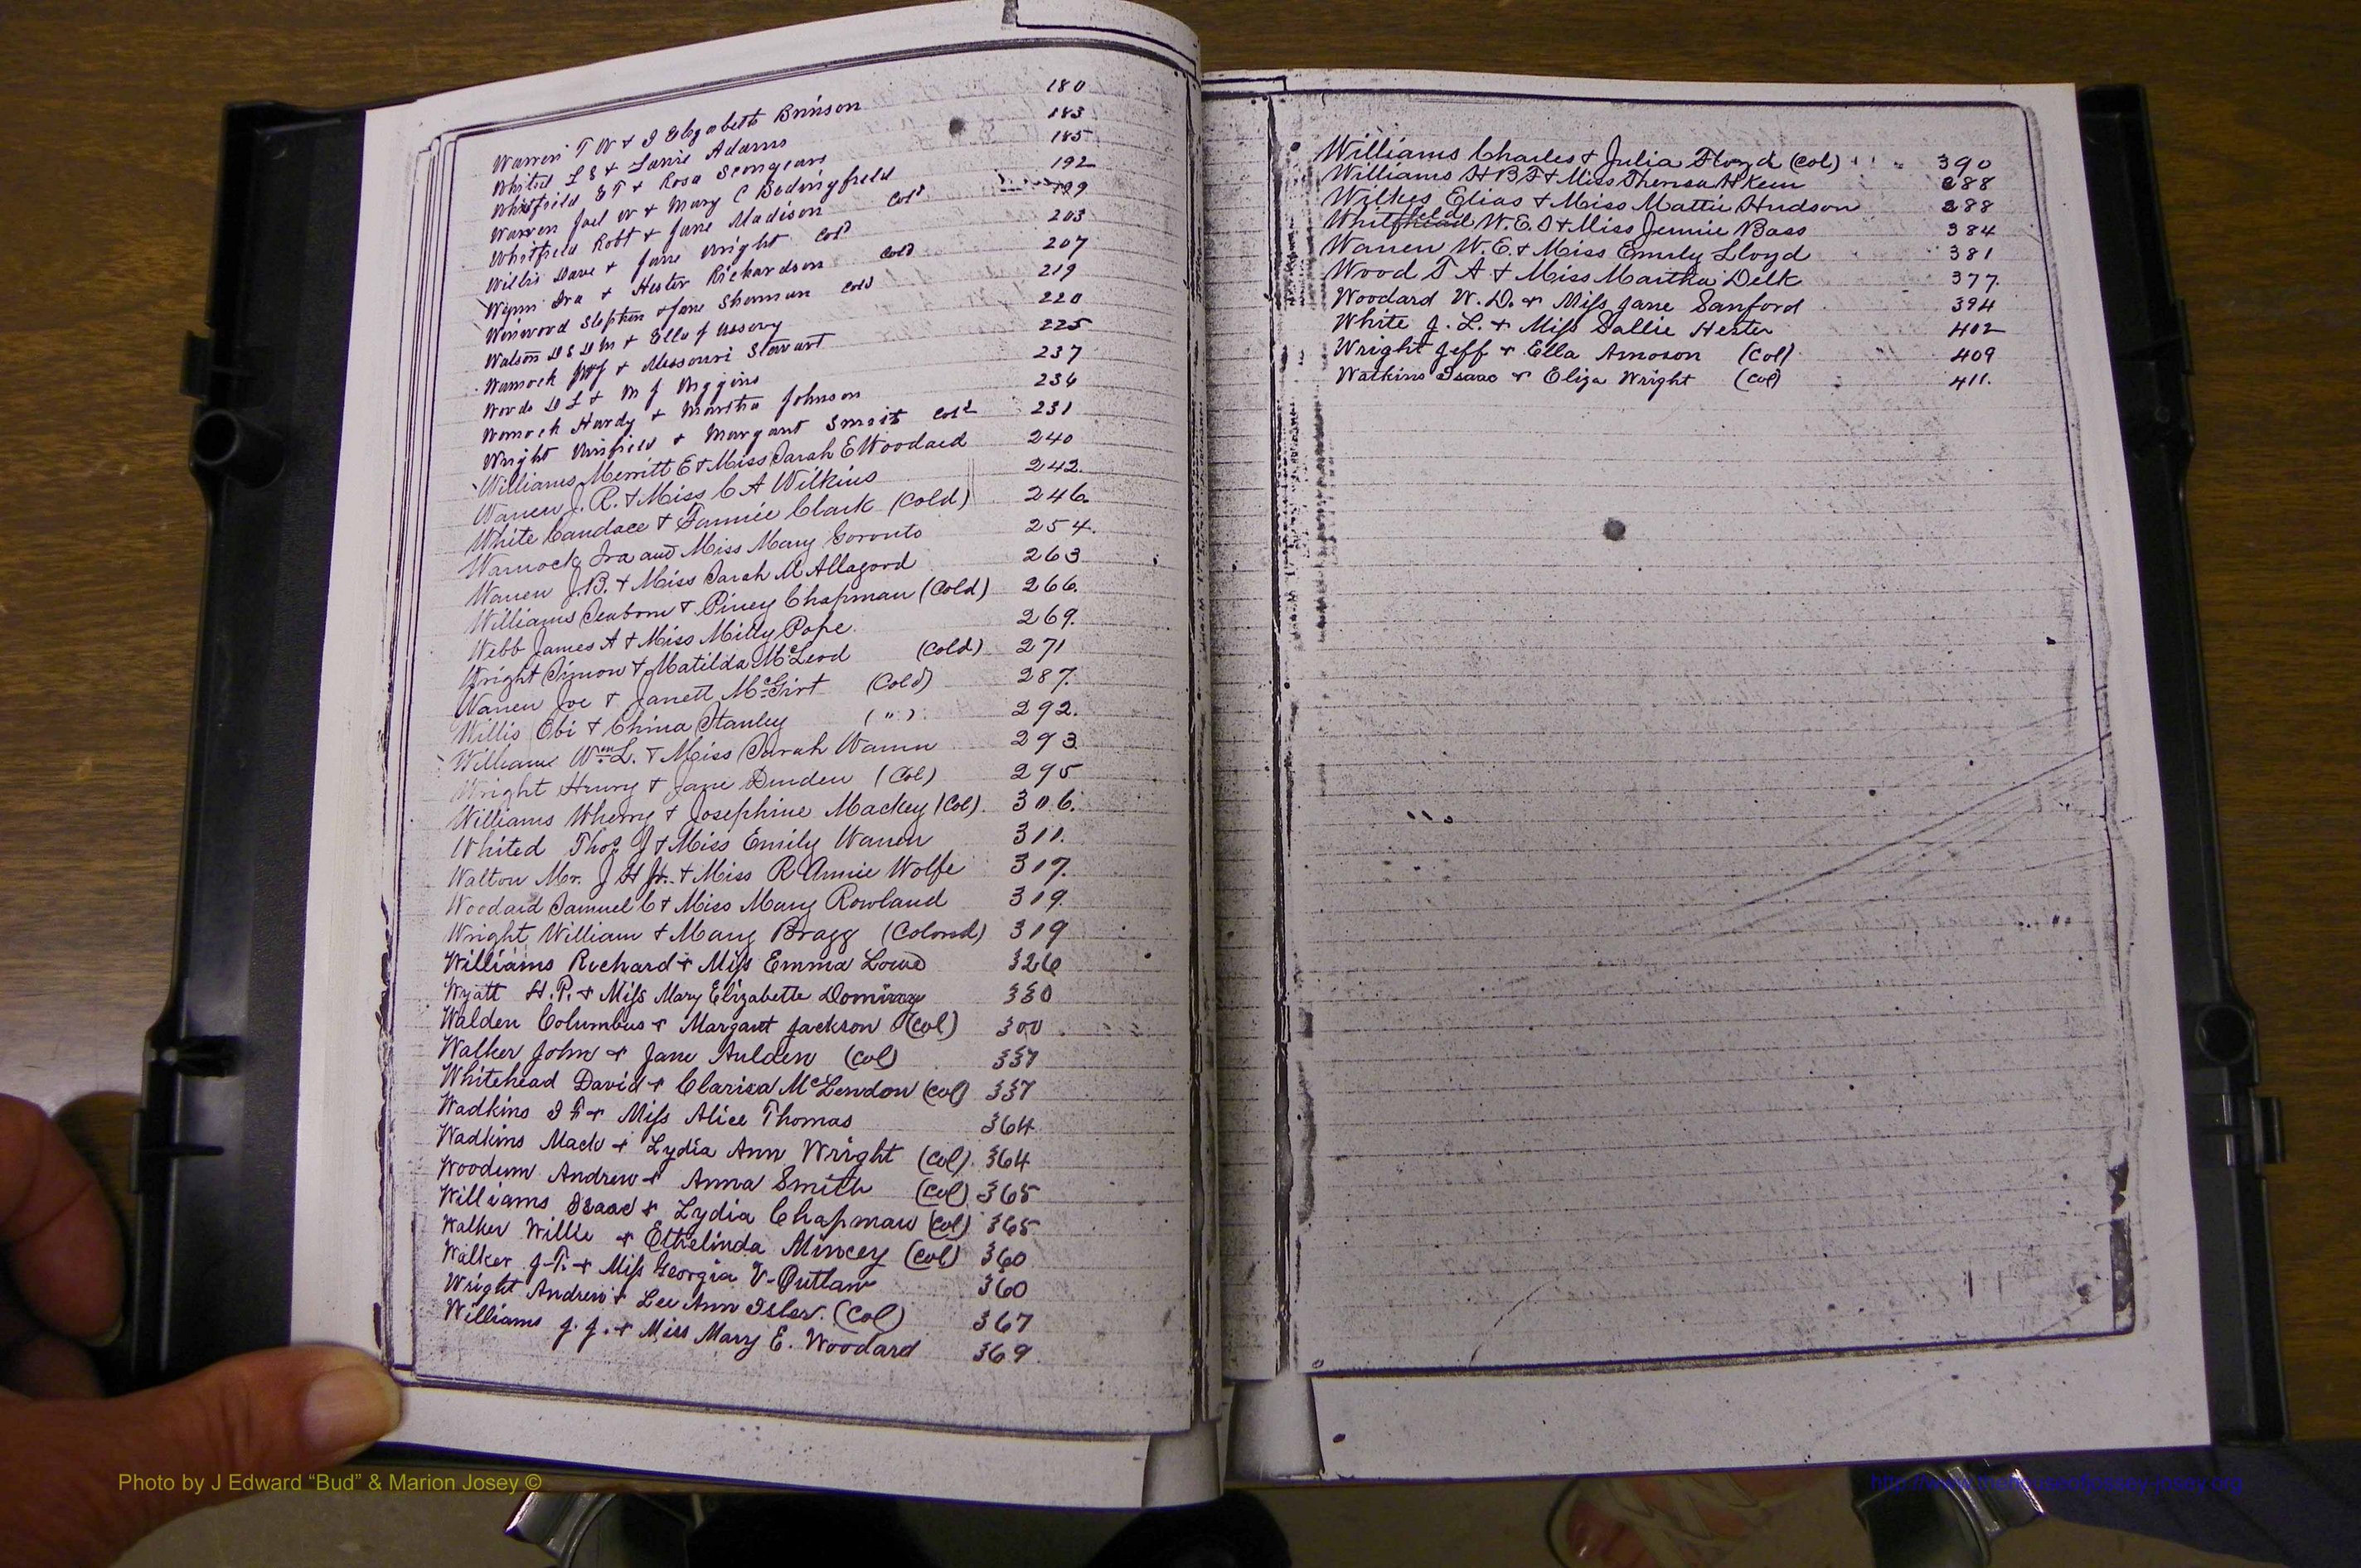 Warren T W & J Elizabeth Brinson 180
Whited L E & Janie Adams 183
Whitfield E T & Rosa Scongears 185
Warren Joel W & Mary C Bedingfield 192
Whitfield Robt & Jane Madison Cold 199
Willis Dave & Jane Wright Cold 203
Wynn Ira & Hester Richardson Cold 207
Winwood Stephen & Jane Sherman Cold 219
Watson & Ella J Ussery 220
Wamock & Missouri Stewart 225
Words D L & M J Wiggins 237
Womock Hardy & Martha Johnson 234
Wright Winfield & Margaret Smith Cold 231
Williams Merritt E & Miss Sarah E Woodard 240
Warren J. R. & Miss C A Wilkins 242.
White Candace & Fannie Clark (Cold) 246.
Warnock Ira and Miss Mary Goronto 254.
Warren J. B. & Miss Sarah M Allagood 263
Williams Seaborn & Piney Chapman (Cold) 266.
Webb James A & Miss Milly Pope. 269.
Wright Simon & Matilda McLeod (Cold) 271
Warren Joe & Janett McGirt (Cold) 287.
Willis Ebi & China Stanley ( " ) 292.
Williams Wm L. & Miss Sarah Warren 293
Wright Henry & Jane Durden (Col) 295
Williams Wherry & Josephine Mackey (Col). 306.
Whited Thos J & Miss Emily Warren 311.
Walton Mr. J H Jr. & Miss R Annie Wolfe 317.
Woodard Samuel C & Miss Mary Rowland 319.
Wright William & Mary Bragg (Colored) 319
Williams Richard & Miss Emma Lowe 326
Wyatt H. P. & Miss Mary Elizabette Dominy 330
Walden Columbus & Margaret Jackson (Col) 300
Walker John & Jane Aulden (Col) 337
Whitehead David & Clarisa McLendon (Col) 337
Wadkins I F & Miss Alice Thomas 364
Wadkins Mack & Lydia Ann Wright (Col). 364
Woodum Andrew & Anna Smith (Col) 365
Williams Isaac & Lydia Chapman (Col) 365
Walker Willie & Ethelinda Mincey (Col) 360
Walker J. T. & Miss Georgia V. Outlaw 360
Wright Andrew & Lee Ann Isler. (Col) 367
Williams J. J. & Miss Mary E. Woodard 369
Williams Charles & Julia Floyd (Col) 390
Williams H B F & Miss Theresa A Keen 388
Wilkes Elias & Miss Mattie Hudson 388
Whitfield W. E. D & Miss Jennie Bass 384
Warren W. E. & Miss Emily Lloyd 381
Wood T A & Miss Martha Delk 377.
Woodard W. D. & Miss Jane Sanford 394
White J. L. & Miss Sallie Hester 402
Wright Jeff & Ella Amoson (Col) 409
Watkins Isaac & Eliza Wright (Col) 411.
Photo by J Edward “Bud” & Marion Josey ©